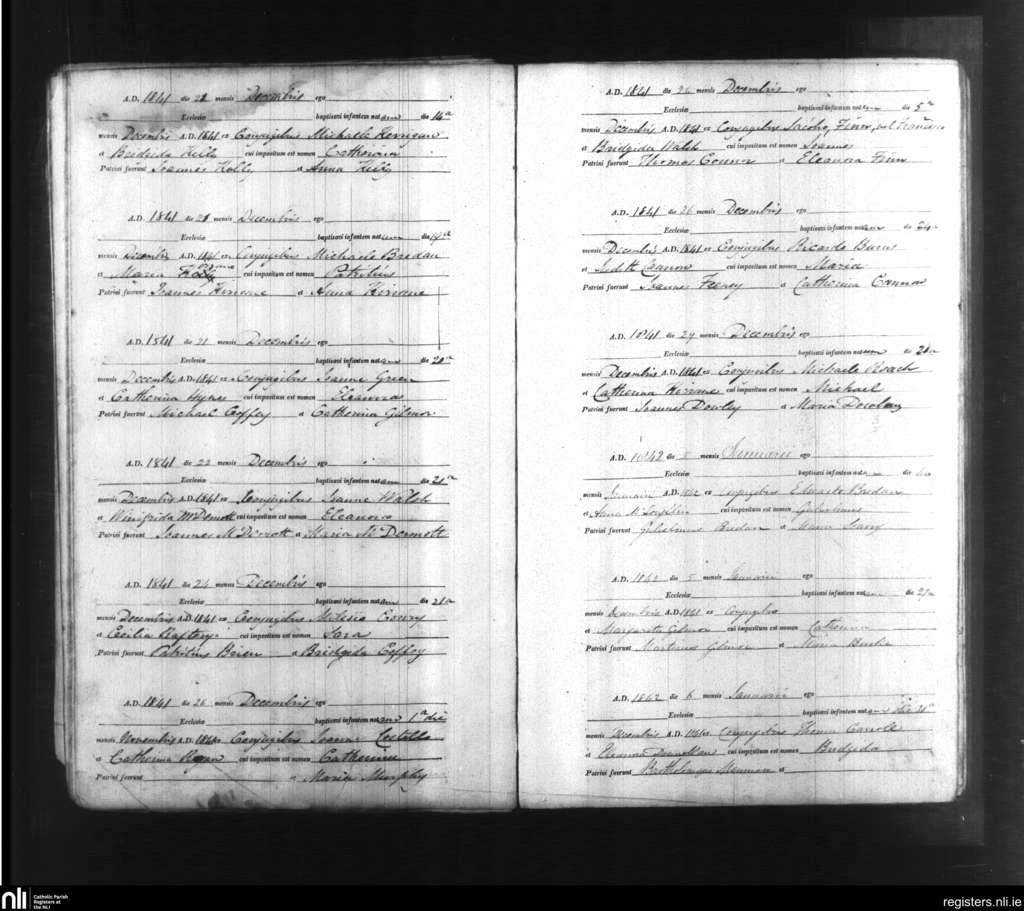 A.D. 1841 die 21 mensis Decembris ego
Ecclesiæ baptizavi infantem natam die 14a
mensis Decembris A.D. 1841 ex Conjugibus Michaele Kerrigan
et Bridgida Kelly cui impositum est nomen Catherina
Patrini fuerunt Joannes Kelly et Anna Kelly
A.D. 1841 die 21 mensis Decembris ego
Ecclesiæ baptizavi infantem natum die
mensis Decembris A.D. 1841 ex Conjugibus Michaele Bredan
et Maria cui impositum est nomen Patritius
Patrini fuerunt Joannes Kirrone et Anna Kirrone
A.D. 1841 die 21 mensis Decembris ego
Ecclesiæ baptizavi infantem natam die 20a
mensis Decembris A.D. 1841 ex Conjugibus Joanne Green
et Catherina Hynes cui impositum est nomen Eleanora
Patrini fuerunt Michael Coffey et Catherina Gilmor
A.D. 1841 die 22 mensis Decembris ego
Ecclesiæ baptizavi infantem natam die 21a
mensis Decembris A.D. 1841 ex Conjugibus Joanne Walsh
et Winifrida McDermott cui impositum est nomen Eleanora
Patrini fuerunt Joannes McDermott et Maria McDermott
A.D. 1841 die 24 mensis Decembris ego
Ecclesiæ baptizavi infantem natam die 21a
mensis Decembris A.D. 1841 ex Conjugibus Milesio
et Cecilia Raftery cui impositum est nomen Sara
Patrini fuerunt Patritius Brien et Bridgida Coffey
A.D. 1841 die 26 mensis Decembris ego
Ecclesiæ baptizavi infantem natam 1a die
mensis Novembris A.D. 1841 ex Conjugibus Joanne Costello
et Catherina cui impositum est nomen Catherina
Patrini fuerunt et Maria Murphy
A.D. 1841 die 26 mensis Decembris ego
Ecclesiæ baptizavi infantem natum die 5a
mensis Decembris A.D. 1841 ex Conjugibus Jacobo Finn, vel Francisco
et Bridgida Walsh cui impositum est nomen Joannes
Patrini fuerunt Thomas Connor et Eleanora Finn
A.D. 1841 die 26 mensis Decembris ego
Ecclesiæ baptizavi infantem natam die 24a
mensis Decembris A.D. 1841 ex Conjugibus Ricardo Burns
et Judith Cannon cui impositum est nomen Maria
Patrini fuerunt Joannes Feeney et Catherina Cannon
A.D. 1841 die 29 mensis Decembris ego
Ecclesiæ baptizavi infantem natum die
mensis Decembris A.D. 1841 ex Conjugibus Michaele Roach
et Catherina Kirrone cui impositum est nomen Michael
Patrini fuerunt Joannes Dowley et Maria
A.D. 1842 die mensis Januarii ego
Ecclesiæ baptizavi infantem natum die
mensis Januarii A.D. 1842 ex Conjugibus Edwardo Bredan
et Anna cui impositum est nomen Gulielmus
Patrini fuerunt Gulielmus Bredan et Maria
A.D. 1842 die 5 mensis Januarii ego
Ecclesiæ baptizavi infantem natam die 27a
mensis Decembris A.D. 1841 ex Conjugibus
et Margarita Gilmor cui impositum est nomen Catherina
Patrini fuerunt Martinus Gilmor et Maria Burke
A.D. 1842 die 6 mensis Januarii ego
Ecclesiæ baptizavi infantem natam die 31a
mensis Decembris A.D. 1841 ex Conjugibus Thoma Carroll
et Eleanora cui impositum est nomen Bridgida
Patrini fuerunt Bartholomeus et
nli Catholic Parish Registers at the NLI
registers.nli.ie